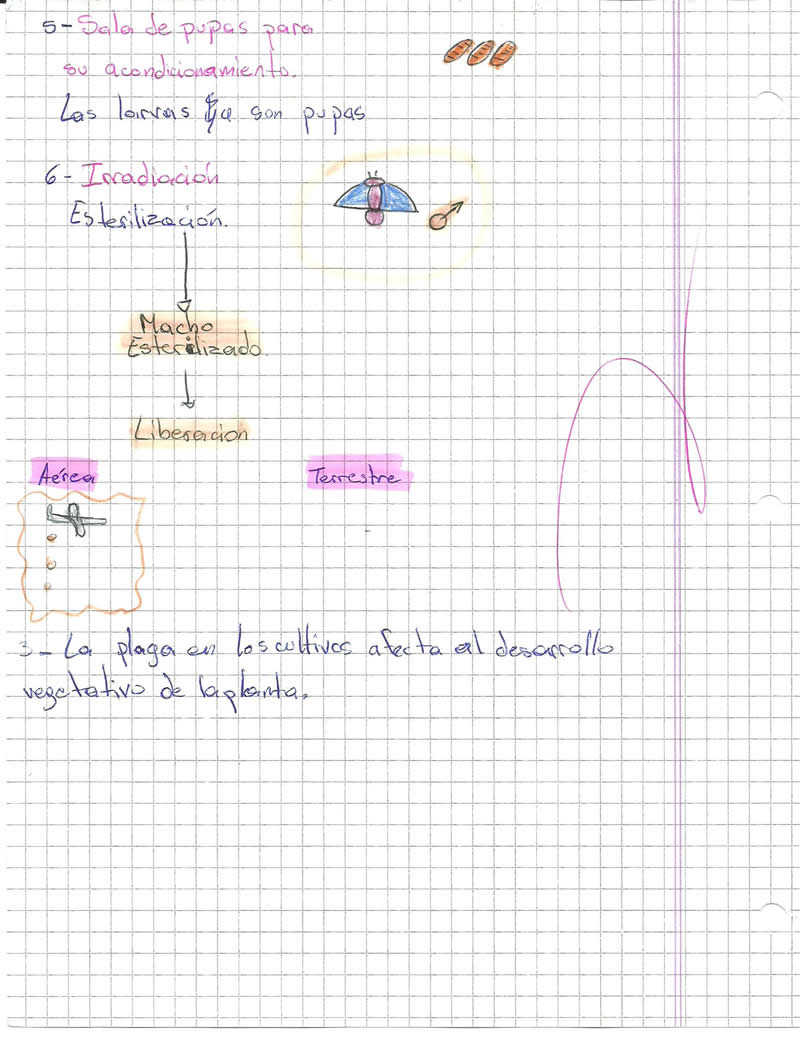 5- Sala de pupas para
su acondicionamiento.
Las larvas ya son pupas
6- Irradiación
Esterilización.
Macho
Esterilizado.
Liberación
Aérea Terrestre
3- La plaga en los cultivos afecta al desarrollo
vegetativo de la planta.